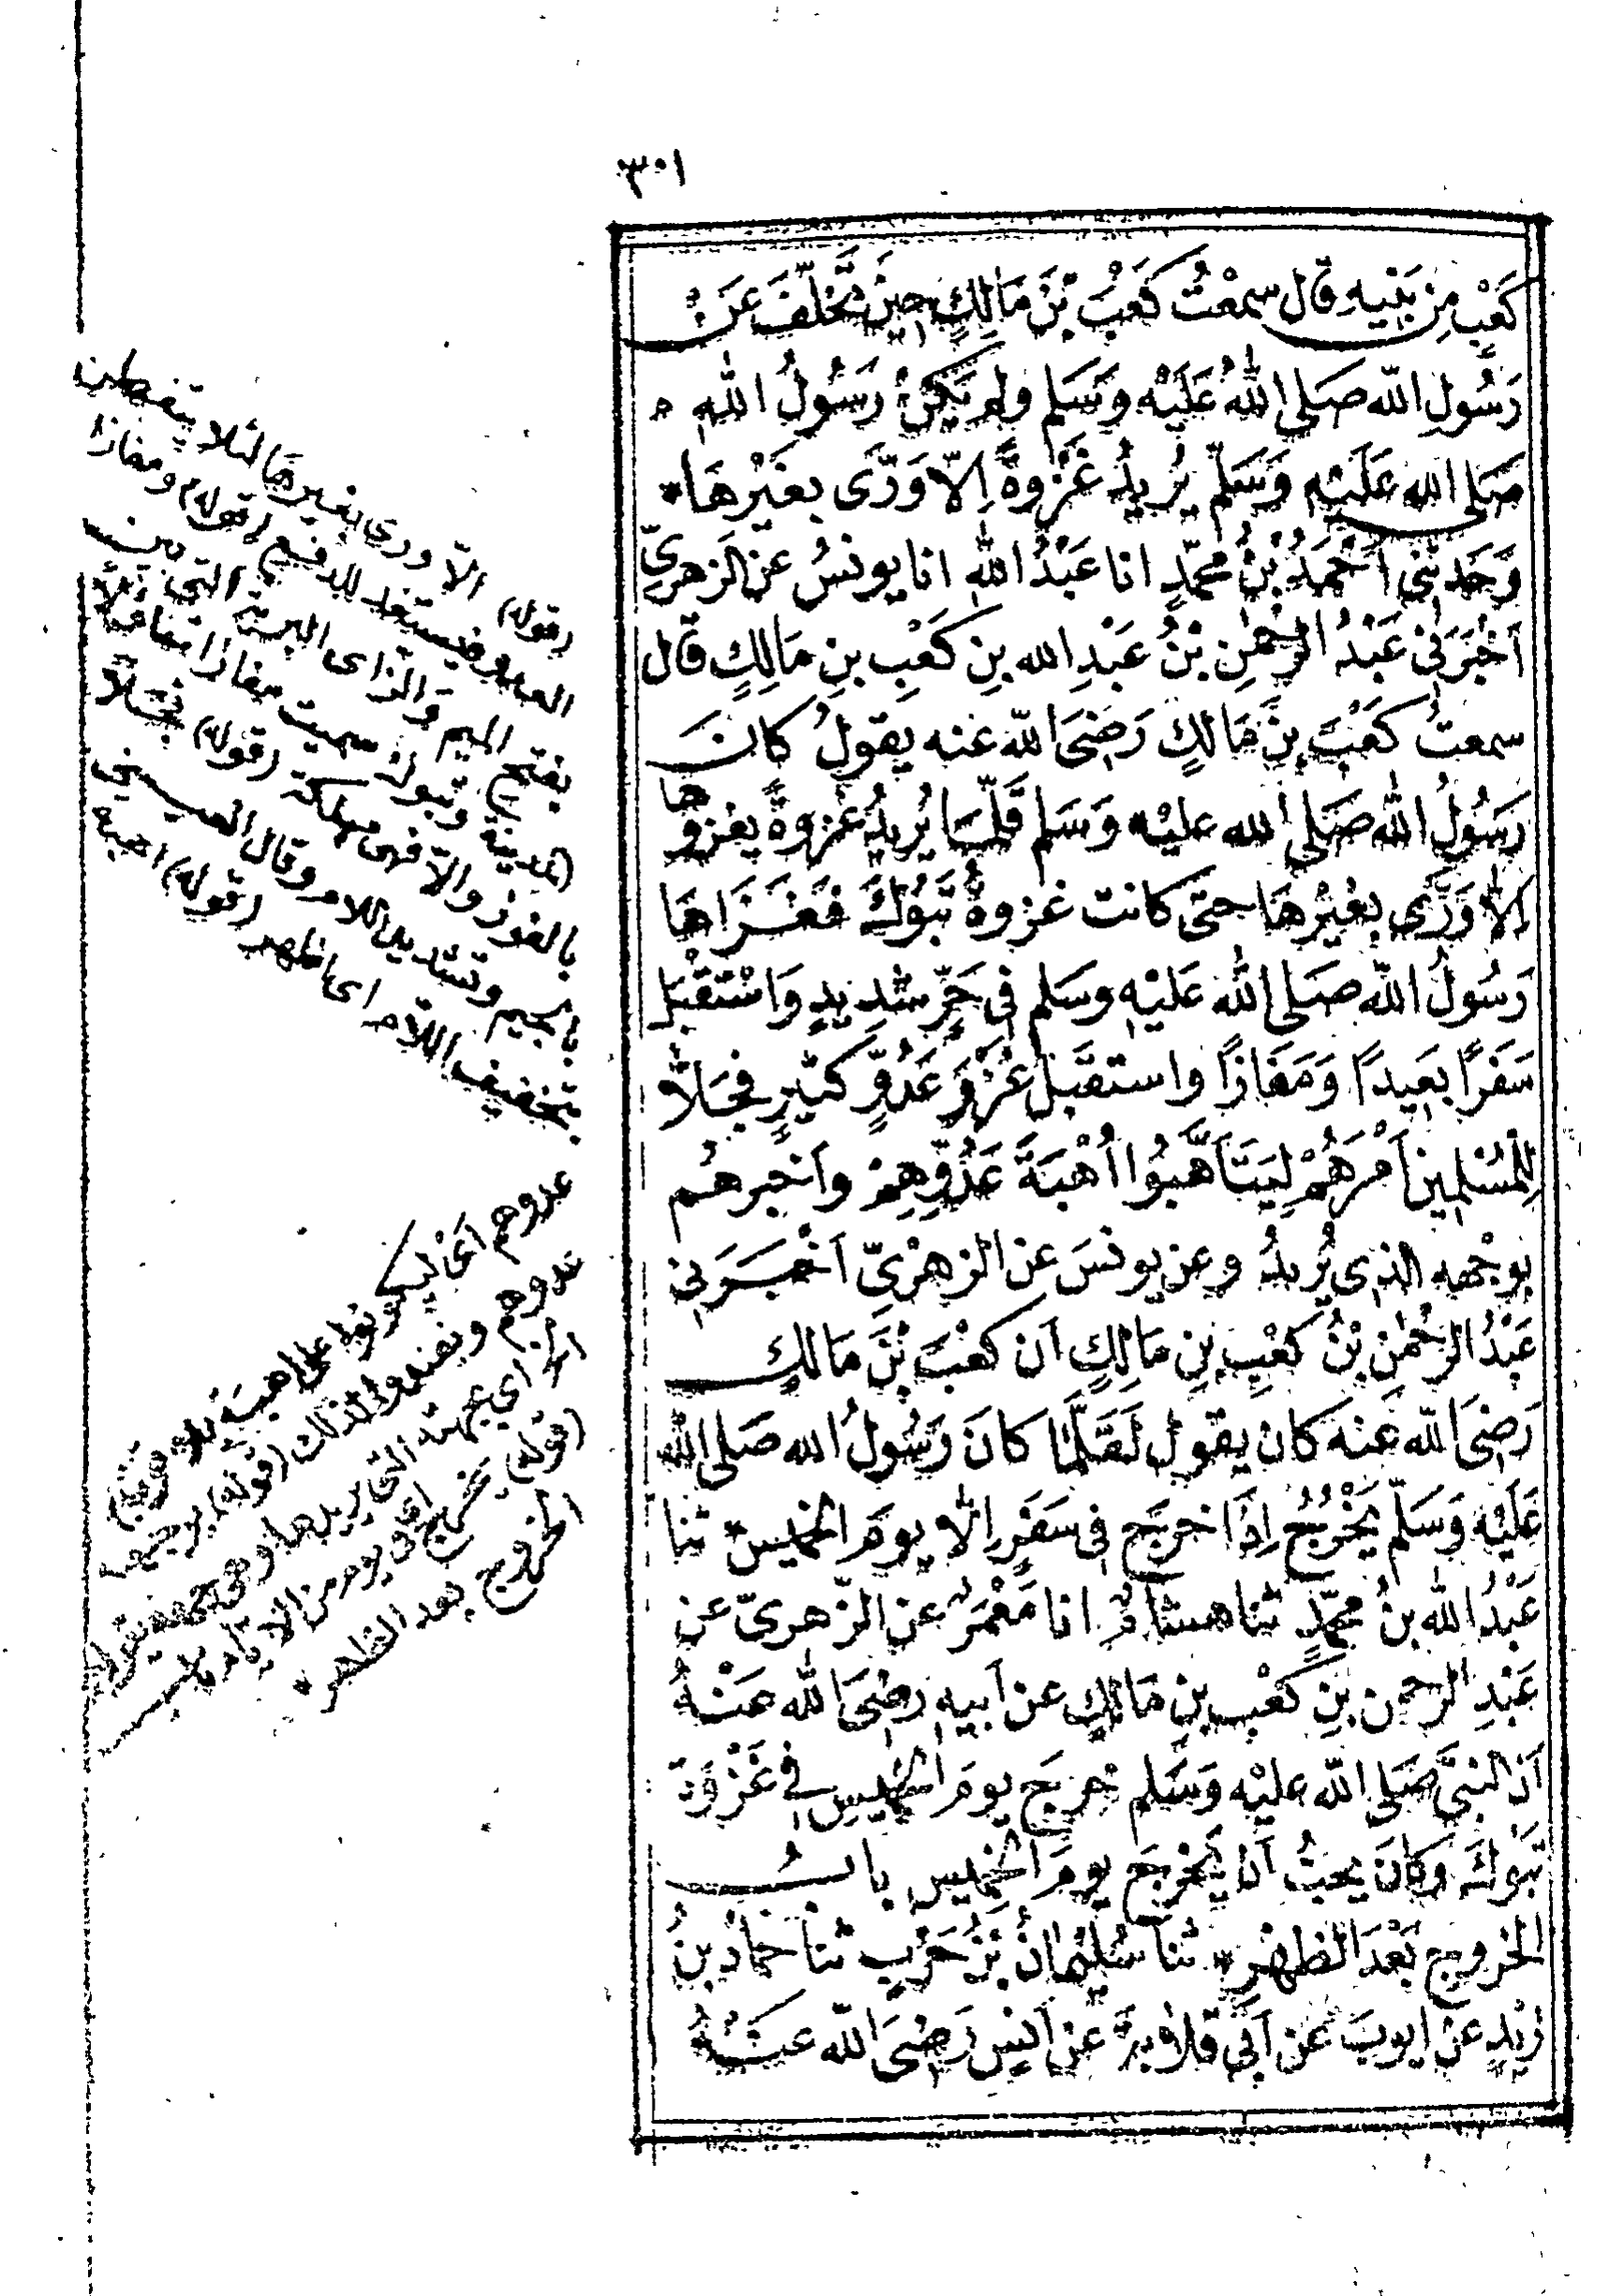 ٣٠١
كَعْبٍ مِن بَنِيهِ قَال سمعْتُ كَعْبَ بْنَ مَالِكٍ حِينَ تَخَلَّفَ عَنْ
رَسُولِ اللّه صَلى اللّٰهُ عَلَيْه وَسَلم ولم يَكُنْ رَسُولُ اللّٰه
صَلى الله عَلَيْهِ وَسَلَّم يُرِيدُ غَزْوةً اِلّا وَرَّى بِغَيْرِهَا
وَحَدثنى اَحْمَدُ بْنُ محمّدٍ انا عَبْدُ اللّٰه انا يونسُ عن الزهرىّ
اَخْبَرَنى عَبْدُ الرحْمٰنِ بْنُ عَبْدِ الله بنِ كَعْبِ بنِ مَالِكٍ قَال
سمعتُ كَعْبَ بنَ مَالكٍ رَضِىَ اللّه عنه يقولُ كانَ
رَسُولُ اللّٰه صَلى الله عليْه وَسَلم قَلّمَا يُرِيدُ غزوةً يغزوهَا
اِلّا وَرَّى بغيْرهَا حتى كانت غزوةُ تَبُوكَ فَغَزَاهَا
رَسُولُ اللّه صَلى اللّٰه عَلَيْه وسَلم فى حَرٍّ شَدِيدٍ وَاسْتَقْبَل
سَفَرًا بَعِيدًا وَمَفَازًا واستقبَل غَزْوَ عَدُوٍّ كثيرٍ فجَلّا
لِلْمُسْلِمِين اَمْرَهُمْ لِيَتَاَهَّبُوا اُهْبَةَ عَدُوِّهِمْ واَخبرهُم
بوَجْهِه الذى يُريدُ وعن يونسَ عن الزهْرىّ اَخْبَرَنِى
عَبْدُ الرحْمٰن بْنُ كَعْبِ بنِ مَالِكٍ اَن كَعْبَ بْنَ مَالكٍ
رَضِىَ اللّه عَنه كان يقول لَقَلَّمَا كانَ رَسُولُ الله صَلى اللّٰه
عَلَيْه وَسَلّم يَخْرُجُ اِذَا خرَج فى سَفَرٍ اِلّا يومَ الخميس ثنا
عَبْدُ اللّٰه بنُ محمّدٍ ثنا هشامٌ انا مَعْمَرٌ عن الزّهرىّ عن
عَبْدِ الرحمن بنِ كَعْب بنِ مَالكٍ عن اَبيهِ رضِىَ اللّٰه عَنْهُ
اَن النبىَّ صَلى اللّه عليْه وَسَلم خرجَ يومَ الخميسِ فى غَزْوَةِ
تَبُوكَ وَكانَ يحبُّ اَن يَخْرجَ يومَ الخميس بابُ
الخروج بَعْدَ الظهْرِ ثنا سُليْمانُ بْنُ حَرْبٍ ثنا حمادُ بنُ
زيْدٍ عَنْ ايوبَ عَن اَبِى قلابةَ عن اَنسٍ رَضِىَ اللّه عنْهُ
(قوله) الّا ورى بغيرها لئلا يتفطن
العدو فيستعد للدفع (قوله) ومفازا
بفتح الميم والزاى البرية التى بين
المدينة وتبوك سميت مفازا تفاؤلا
بالفوز والّا فهى مهلكة (قوله) فجلّا
بالجيم وتشديد اللام وقال العينى
بتخفيف اللام اى اظهر (قوله) اهبة
عدوهم اى ليكونوا على اهبة يلاقون بها
عدوهم ويعتدوا لذلك (قوله) بوجهه
اى بجهته التى يريدها وهى جهة
(قوله) يخرج اى فى يوم من الايام
الخروج بعد الظهر